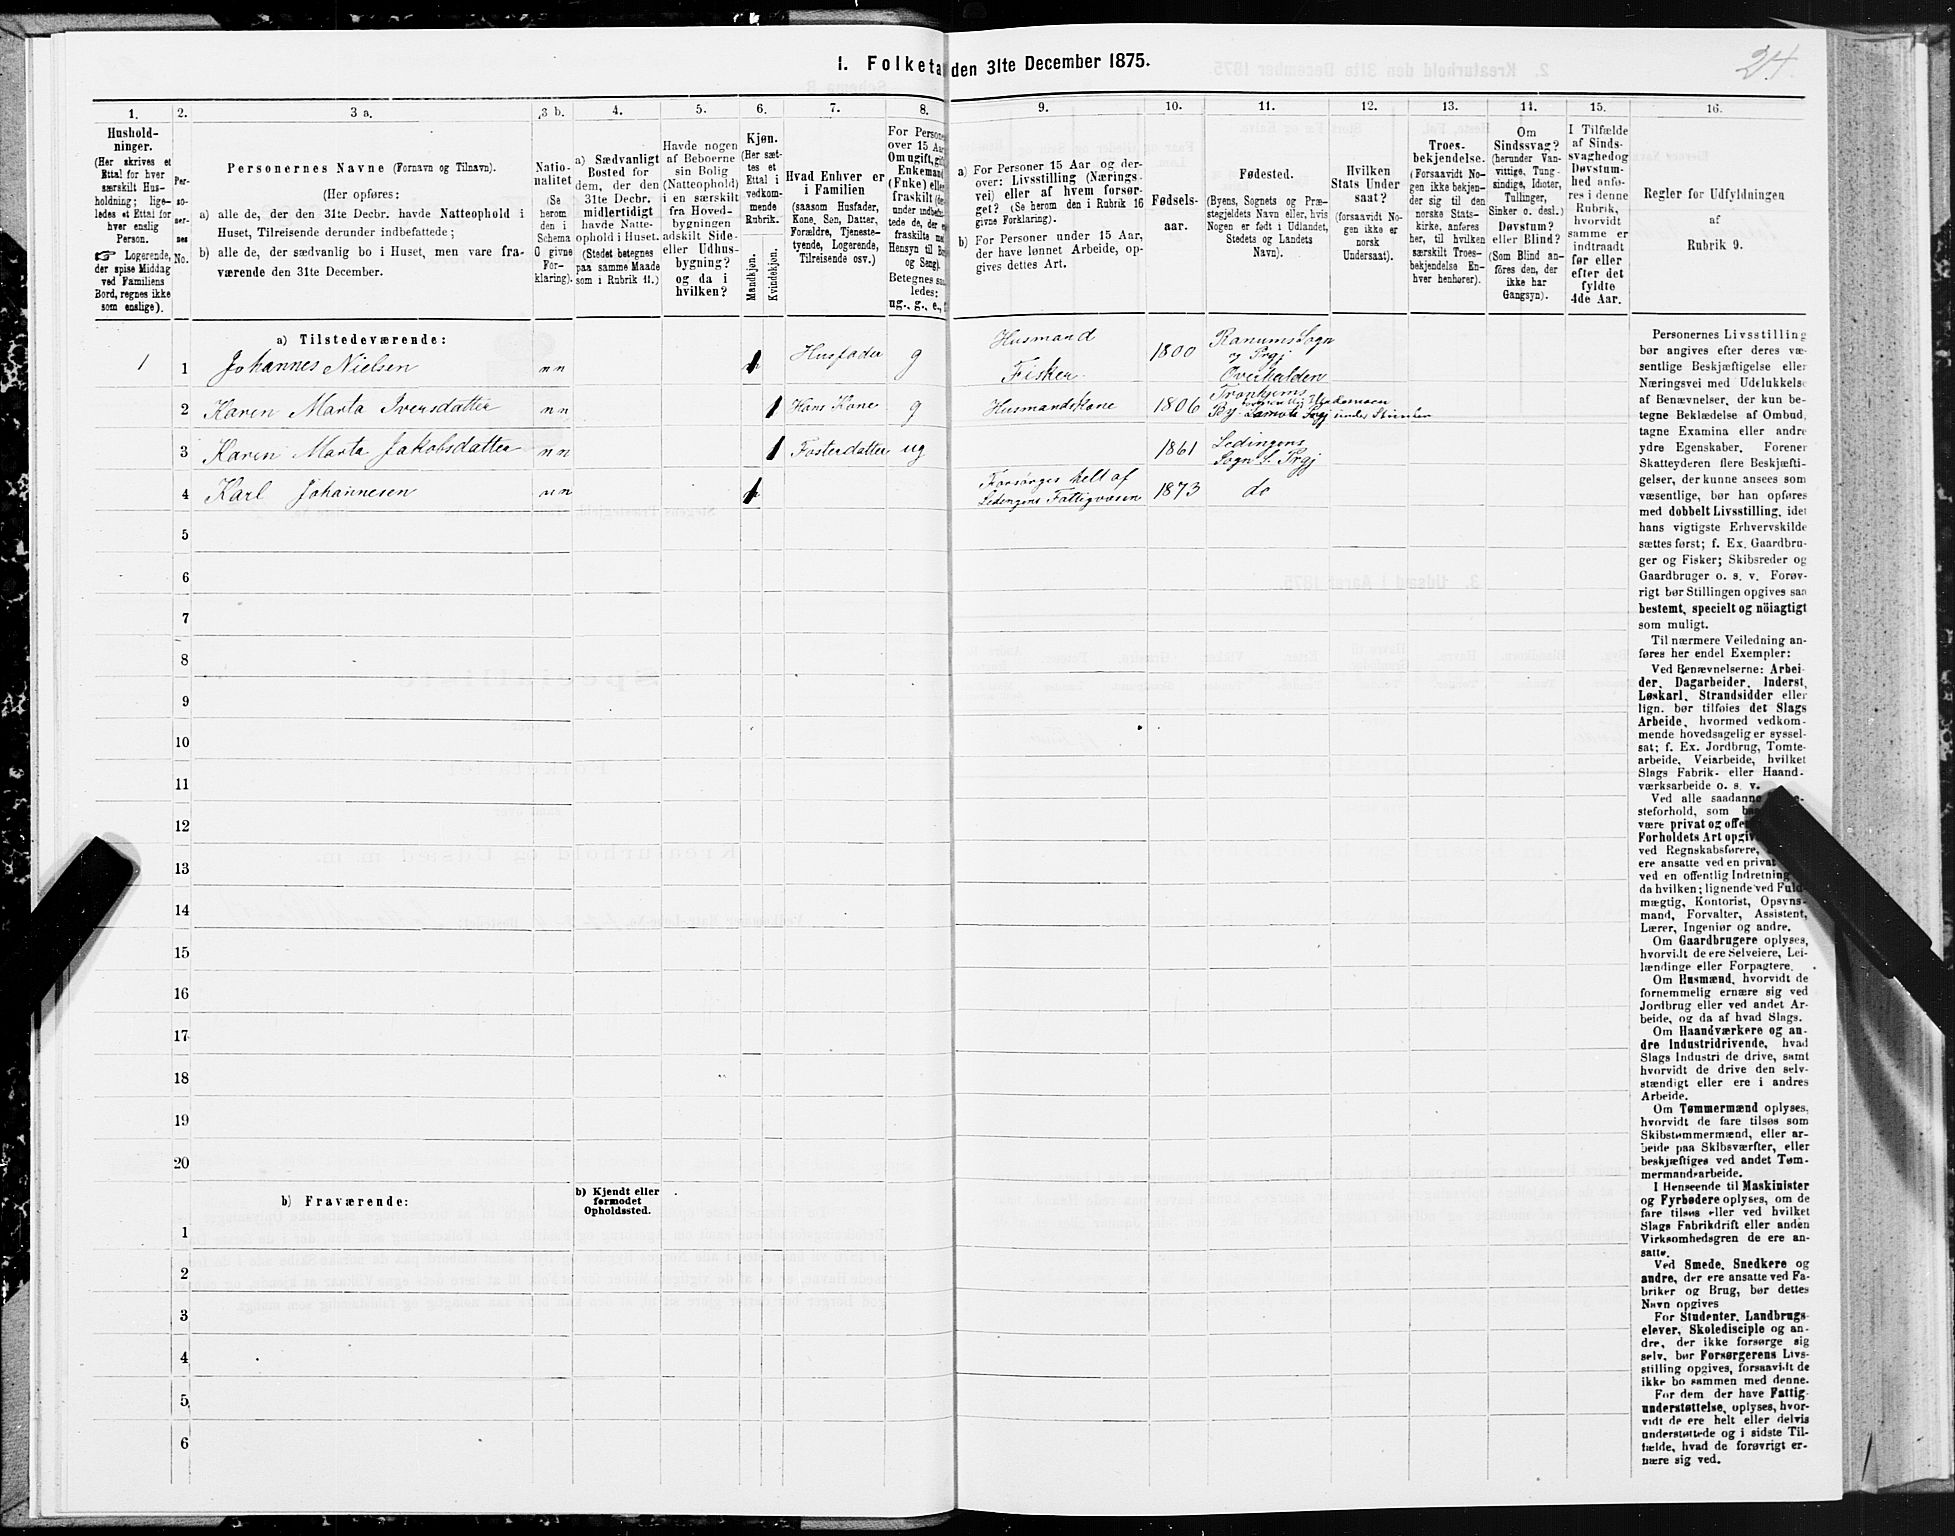 1. Folketa den 31te December 1875.
24.
1.
Hushold-
ninger.
(Her skrives et
Ettal for hver
særskilt Hus-
holdning; lige-
ledes et Ettal for
hver enslig
Person.
☞ Logerende,
der spise Middag
ved Familiens
Bord, regnes ikke
som enslige).
2.
Per-
so-
ner-
nes
No.
3 a.
Personernes Navne (Fornavn og Tilnavn).
(Her opføres:
a) alle de, der den 31te Decbr. havde Natteophold i
Huset, Tilreisende derunder indbefattede;
b) alle de, der sædvanlig bo i Huset, men vare fra-
værende den 31te December.
3 b.
Natio-
nalitet
(Se
herom
den i
Schema
O givne
For-
klaring).
4.
a) Sædvanligt
Bosted for
dem, der den
31te Decbr.
midlertidigt
havde Natte-
ophold i Huset.
(Stedet betegnes
paa samme Maade
som i Rubrik 11.)
5.
Havde nogen
af Beboerne
sin Bolig
(Natteophold)
i en særskilt
fra Hoved-
bygningen
adskilt Side-
eller Udhus-
bygning?
og da i
hvilken?
6.
Kjøn.
(Her sæt-
tes et
Ettal i
vedkom-
mende
Rubrik.
Mandkjøn.
Kvindekjøn.
7.
Hvad Enhver er
i Familien
(saasom Husfader,
Kone, Søn, Datter,
Forældre, Tjeneste-
tyende, Logerende,
Tilreisende osv.)
8.
For Persone
over 15 Aar
Om ugift, gift,
Enkemand
(Enke) eller
fraskilt (der-
under indbefat-
tede de, der ere
fraskilte med
Hensyn til Bord
og Seng).
Betegnes saa-
ledes:
ug., g., e.,
9.
a) For Personer 15 Aar og der-
over: Livsstilling (Nærings-
vei) eller af hvem forsør-
get? (Se herom den i Rubrik 16
givne Forklaring).
b) For Personer under 15 Aar,
der have lønnet Arbeide, op-
gives dettes Art.
10.
Fødsels-
aar.
11.
Fødested.
(Byens, Sognets og Præ-
stegjeldets Navn eller, hvis
Nogen er født i Udlandet,
Stedets og Landets
Navn).
12.
Hvilken
Stats Under
saat?
(forsaavidt No-
gen ikke er
norsk
Undersaat).
13.
Troes-
bekjendelse.
(Forsaavidt No-
gen ikke bekjen-
der sig til den
norske Stats-
kirke, anføres
her, til hvilken
særskilt Troes-
bekjendelse En-
hver henhører).
14.
Om
Sindssvag?
(herunder Van-
vittige, Tung-
sindige, Idioter,
Tullinger,
Sinker o. desl.)
Døvstum?
eller Blind?
(Som Blind an-
føres den, der
ikke har
Gangsyn).
15.
I Tilfælde
af Sinds-
svaghed og
Døvstum-
hed anfø-
res i denne
Rubrik,
hvorvidt
samme er
indtraadt
før eller
efter det
fyldte
4de Aar.
16.
Regler for Udfyldningen
af
Rubrik 9.
a) Tilstedeværende:
1 1 Johannes Nielsen nn 1 Husfader g Husmand
Fisker 1800 Ranums Sogn
og Prgj
Overhalden
2 Karen Marta Iversdatter nn 1 Hans Kone g Husmandskone 1806 Tronhjems
By
3 Karen Marta Jakobsdatter nn 1 Fosterdatter ug 1861 Lødingens
Sogn & Prgj
4 Karl Johannesen nn 1 Forsørges helt af
Lødingens Fattigvæsen 1873 do
5
6
7
8
9
10
11
12
13
14
15
16
17
18
19
20
b) Fraværende:
b) Kjendt eller
formodet
Opholdssted.
1
2
3
4
5
6
Personernes Livsstilling
bør angives efter deres væ-
sentlige Beskjæftigelse eller
Næringsvei med Udelukkelse
af Benævnelser, der kun be-
tegne Beklædelse af Ombud,
tagne Examina eller andre
ydre Egenskaber. Forener
Skatteyderen flere Beskjæfti-
gelser, der kunne ansees som
væsentlige, bør han opføres
med dobbelt Livsstilling, idet
hans vigtigste Erhvervskilde
sættes først; f. Ex. Gaardbru-
ger og Fisker; Skibsreder og
Gaardbruger o. s. v. Forøv-
rigt bør Stillingen opgives saa
bestemt, specielt og nöiagtigt
som muligt.
Til nærmere Veiledning an-
føres her endel Exempler:
Ved Benævnelserne: Arbei-
der, Dagarbeider, Inderst,
Løskarl, Strandsidder eller
lign. bør tilføies det Slags
Arbeide, hvormed vedkom-
mende hovedsagelig er syssel-
sat; f. Ex. Jordbrug, Tomte-
arbeide, Veiarbeide, hvilket
Slags Fabrik- eller Haand-
værksarbeide o. s. v.
Ved alle saadanne
steforhold, som
være privat og
Forholdets Art
ved Regnskabsførere,
ere ansatte ved en privat
ved en offentlig Indretning
da hvilken; lignende ved Fuld-
mægtig, Kontorist, Opsyns-
mand, Forvalter, Assistent,
Lærer, Ingeniør og andre.
Om Gaardbrugere oplyses,
hvorvidt de ere Selveiere, Lei-
lændinge eller Forpagtere.
Om Husmænd, hvorvidt de
fornemmelig ernære sig ved
Jordbrug eller ved andet Ar-
beide, og da af hvad Slags.
Om Haandværkere og an-
dre Industridrivende, hvad
Slags Industri de drive, samt
hvorvidt de drive den selv-
stændigt eller ere i andres
Arbeide.
Om Tømmermænd oplyses,
hvorvidt de fare tilsøs som
Skibstømmermænd, eller ar-
beide paa Skibsværfter, eller
beskjæftiges ved andet Tøm-
mermandsarbeide.
I Henseende til Maskinister
og Fyrbødere oplyses, om de
fare tilsøs eller ved hvilket
Slags Fabrikdrift eller anden
Virksomhedsgren de ere an-
satte.
Ved Smede, Snedkere og
andre, der ere ansatte ved Fa-
briker og Brug, bør dettes
Navn opgives
For Studenter, Landbrugs-
elever, Skoledisciple og an-
dre, der ikke forsørge sig
selv, bør Forsørgerens Livs-
stilling opgives, forsaavidt de
ikke bo sammen med denne.
For dem der have Fattig-
understøttelse, oplyses, hvor-
vidt de ere helt eller delvis
understøttede og i sidste Til-
fælde, hvad de forøvrigt er-
nære sig ved.